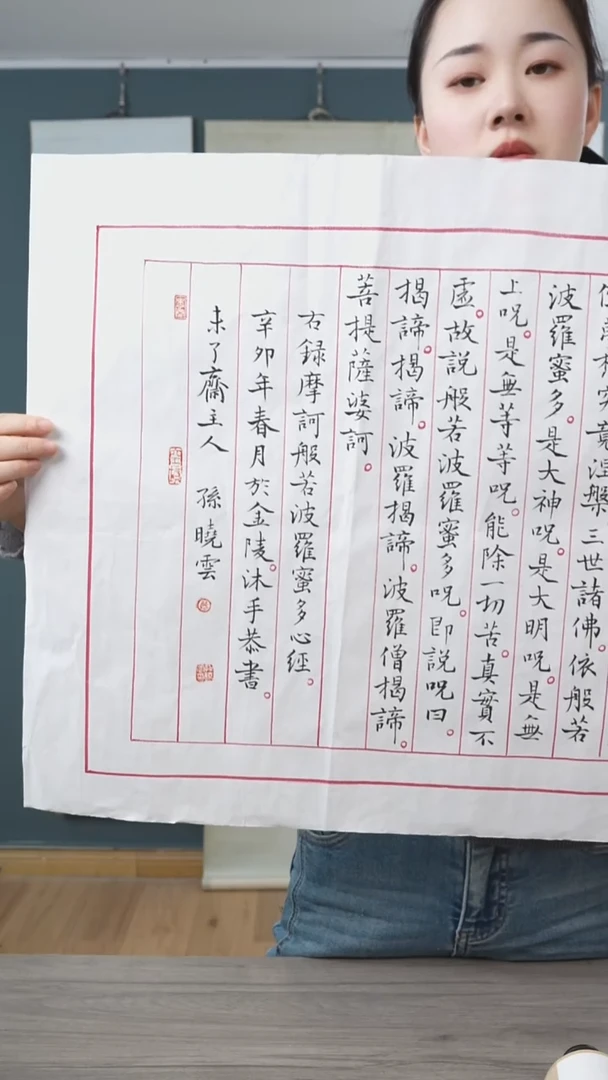 究竟涅槃三世諸佛。依般若
波羅蜜多。是大神呪。是大明呪。是無
上呪。是無等等呪。能除一切苦。真實不
虛。故説般若波羅蜜多呪。即説呪曰。
揭諦。揭諦。波羅揭諦。波羅僧揭諦。
菩提薩婆訶。
右録摩訶般若波羅蜜多心經。
辛卯年春月於金陵。沐手恭書。
未了齋主人 孫曉雲